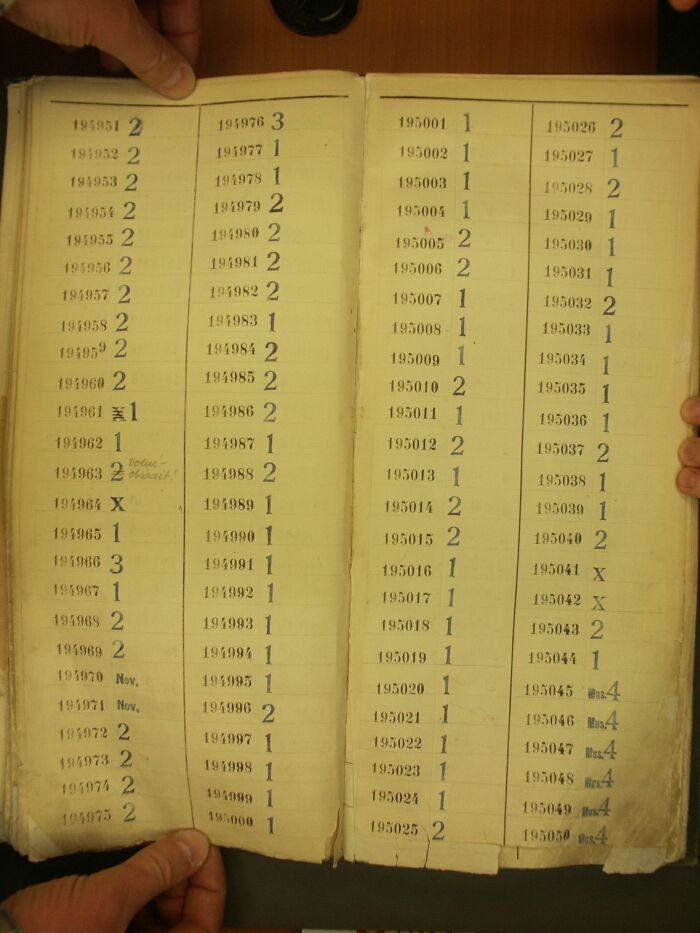 194951 2
194952 2
194953 2
194954 2
194955 2
194956 2
194957 2
194958 2
194959 2
194960 2
194961 1
194962 1
194963 2
194964 X
194965 1
194966 3
194967 1
194968 2
194969 2
194970 Nov.
194971 Nov.
194972 2
194973 2
194974 2
194975 2
194976 3
194977 1
194978 1
194979 2
194980 2
194981 2
194982 2
194983 1
194984 2
194985 2
194986 2
194987 1
194988 2
194989 1
194990 1
194991 1
194992 1
194993 1
194994 1
194995 1
194996 2
194997 1
194998 1
194999 1
195000 1
195001 1
195002 1
195003 1
195004 1
195005 2
195006 2
195007 1
195008 1
195009 1
195010 2
195011 1
195012 2
195013 1
195014 2
195015 2
195016 1
195017 1
195018 1
195019 1
195020 1
195021 1
195022 1
195023 1
195024 1
195025 2
195026 2
195027 1
195028 2
195029 1
195030 1
195031 1
195032 2
195033 1
195034 1
195035 1
195036 1
195037 2
195038 1
195039 1
195040 2
195041 X
195042 X
195043 2
195044 1
195045 Mus. 4
195046 Mus. 4
195047 Mus. 4
195048 Mus. 4
195049 Mus. 4
195050 Mus. 4